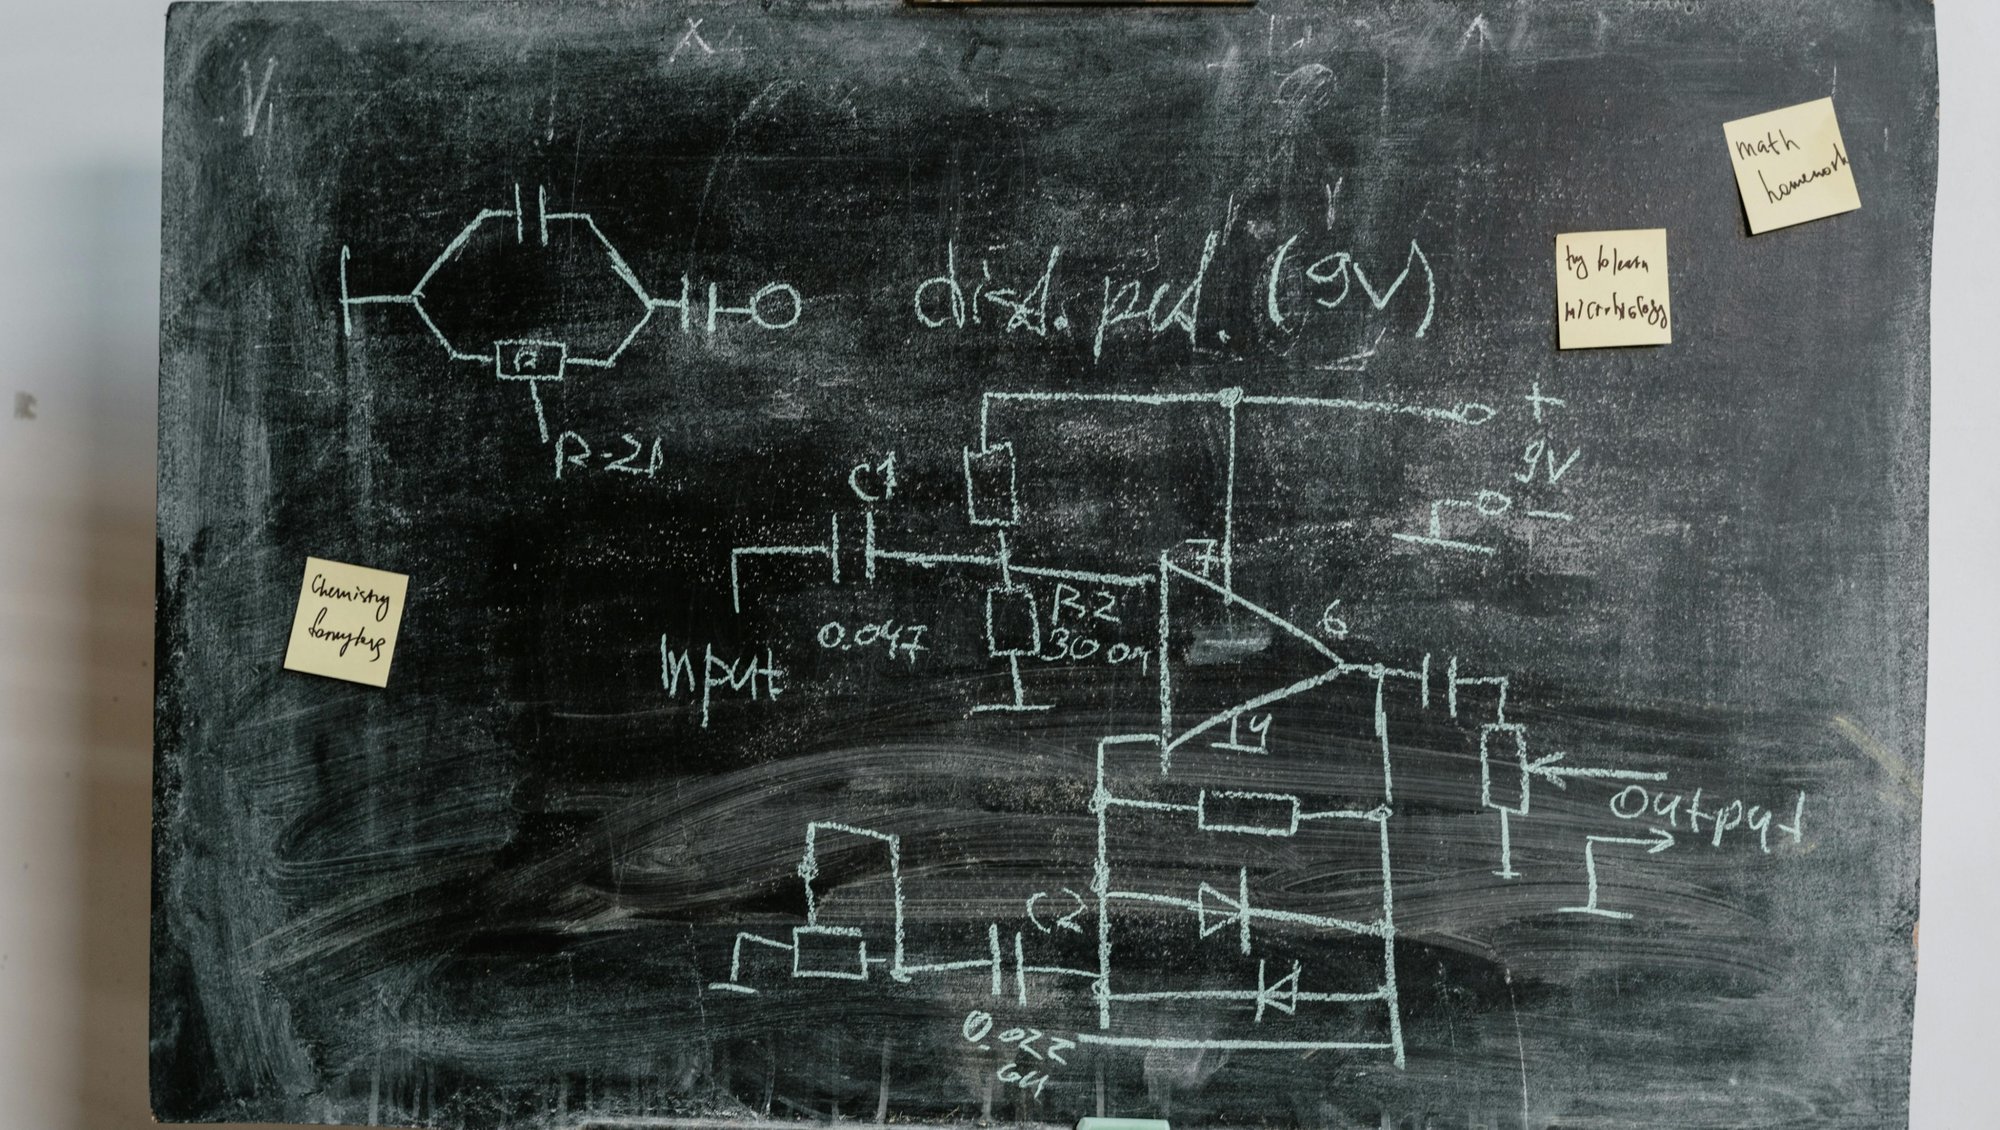 math
homework
try to learn
dist. ped. (9V)
R
R-21
+
9V
-
C1
7
R2
Chemistry
0.047
30 om
6
Input
14
Output
C2
0.022